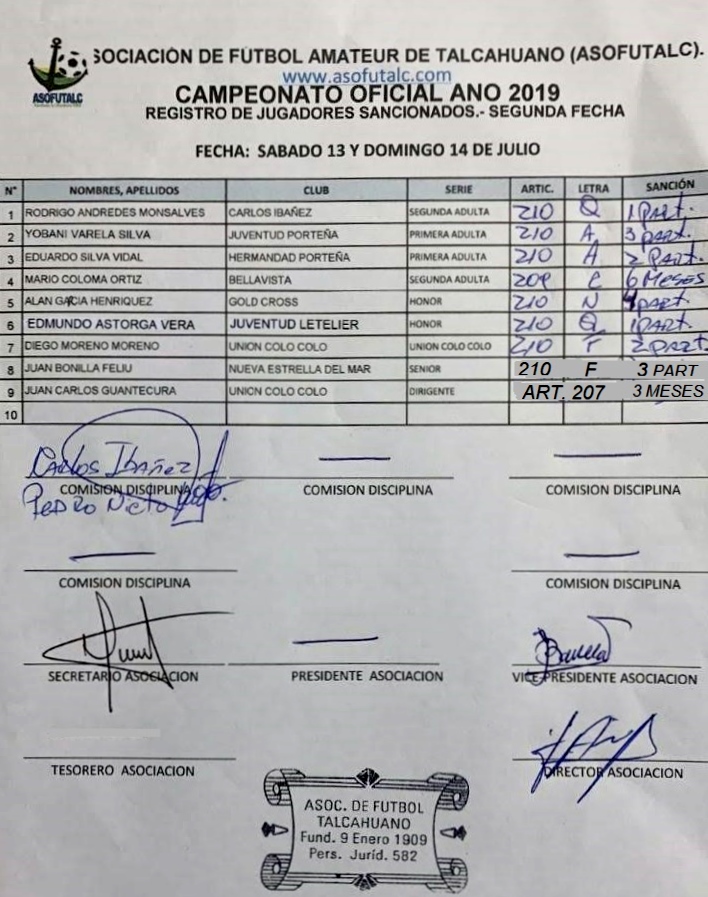 SOCIACIÓN DE FUTBOL AMATEUR DE TALCAHUANO (ASOFUTALC).
www.asofutalc.com
ASOFUTALC
CAMPEONATO OFICIAL ANO 2019
REGISTRO DE JUGADORES SANCIONADOS.- SEGUNDA FECHA
FECHA: SABADO 13 Y DOMINGO 14 DE JULIO
N° NOMBRES, APELLIDOS CLUB SERIE ARTIC. LETRA SANCIÓN
1 RODRIGO ANDREDES MONSALVES CARLOS IBAÑEZ SEGUNDA ADULTA 210 Q 1 PART.
2 YOBANI VARELA SILVA JUVENTUD PORTEÑA PRIMERA ADULTA 210 A 3 PART.
3 EDUARDO SILVA VIDAL HERMANDAD PORTEÑA PRIMERA ADULTA 210 A 2 PART.
4 MARIO COLOMA ORTIZ BELLAVISTA SEGUNDA ADULTA 209 C 6 MESES
5 ALAN GARCIA HENRIQUEZ GOLD CROSS HONOR 210 N 4 PART
6 EDMUNDO ASTORGA VERA JUVENTUD LETELIER HONOR 210 Q 1 PART.
7 DIEGO MORENO MORENO UNION COLO COLO UNION COLO COLO 210 F 2 PART.
8 JUAN BONILLA FELIU NUEVA ESTRELLA DEL MAR SENIOR 210 F 3 PART
9 JUAN CARLOS GUANTECURA UNION COLO COLO DIRIGENTE ART. 207 3 MESES
10
CARLOS IBAÑEZ
COMISION DISCIPLINA COMISION DISCIPLINA COMISION DISCIPLINA
PEDRO NIETO
COMISION DISCIPLINA COMISION DISCIPLINA
SECRETARIO ASOCIACION PRESIDENTE ASOCIACION VICE PRESIDENTE ASOCIACION
TESORERO ASOCIACION DIRECTOR ASOCIACION
ASOC. DE FUTBOL
TALCAHUANO
Fund. 9 Enero 1909
Pers. Jurid. 582